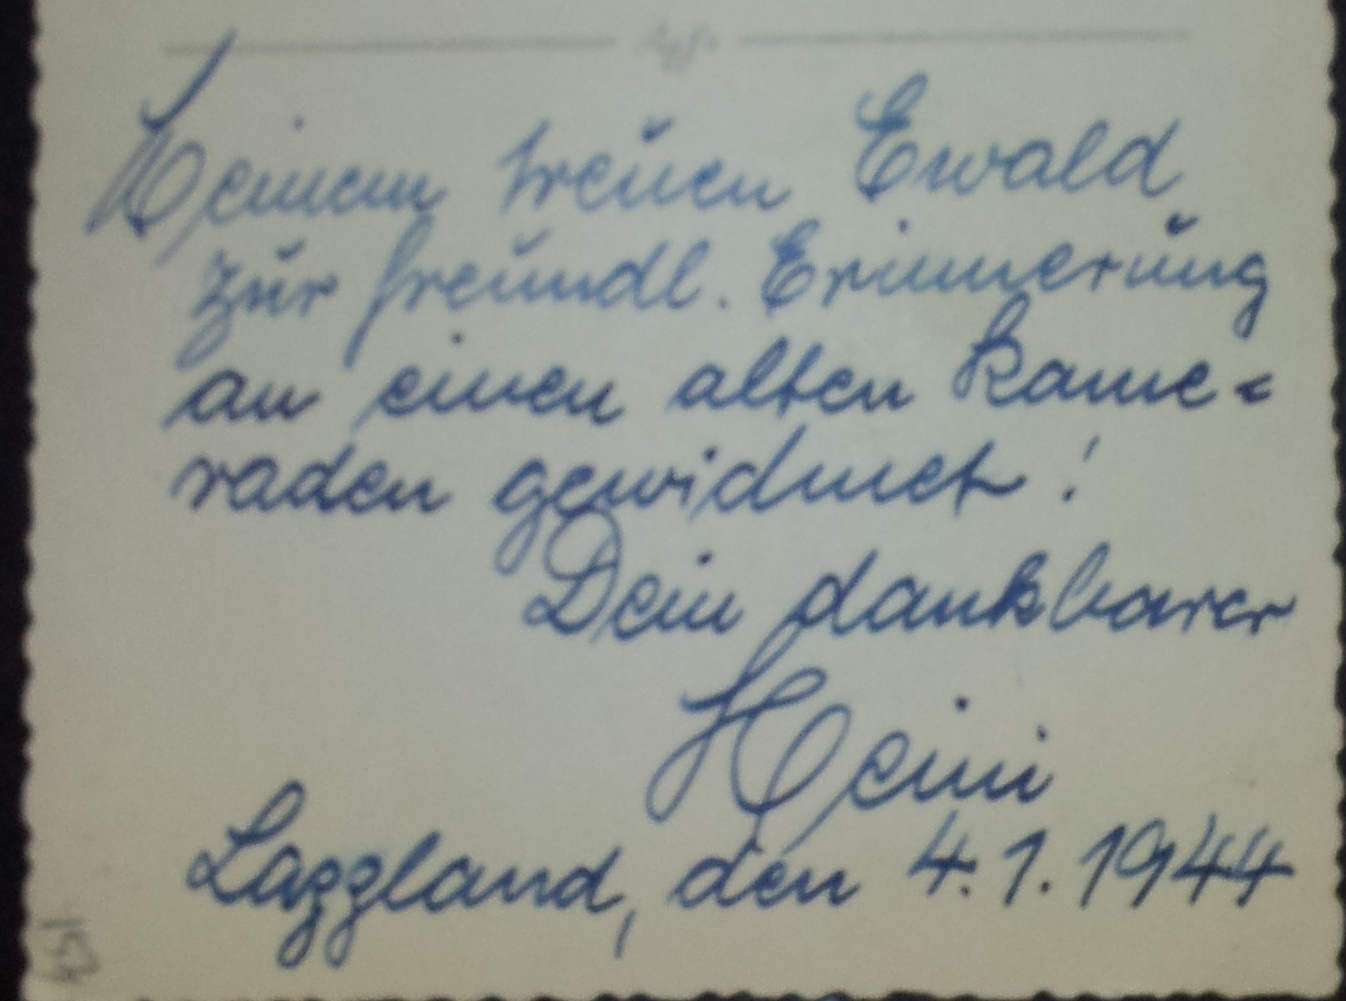 Meinem treuen Ewald
zur freundl. Erinnerung
an einen alten Kame=
raden gewidmet!
Dein dankbarer
Heini
Lappland, den 4.1.1944